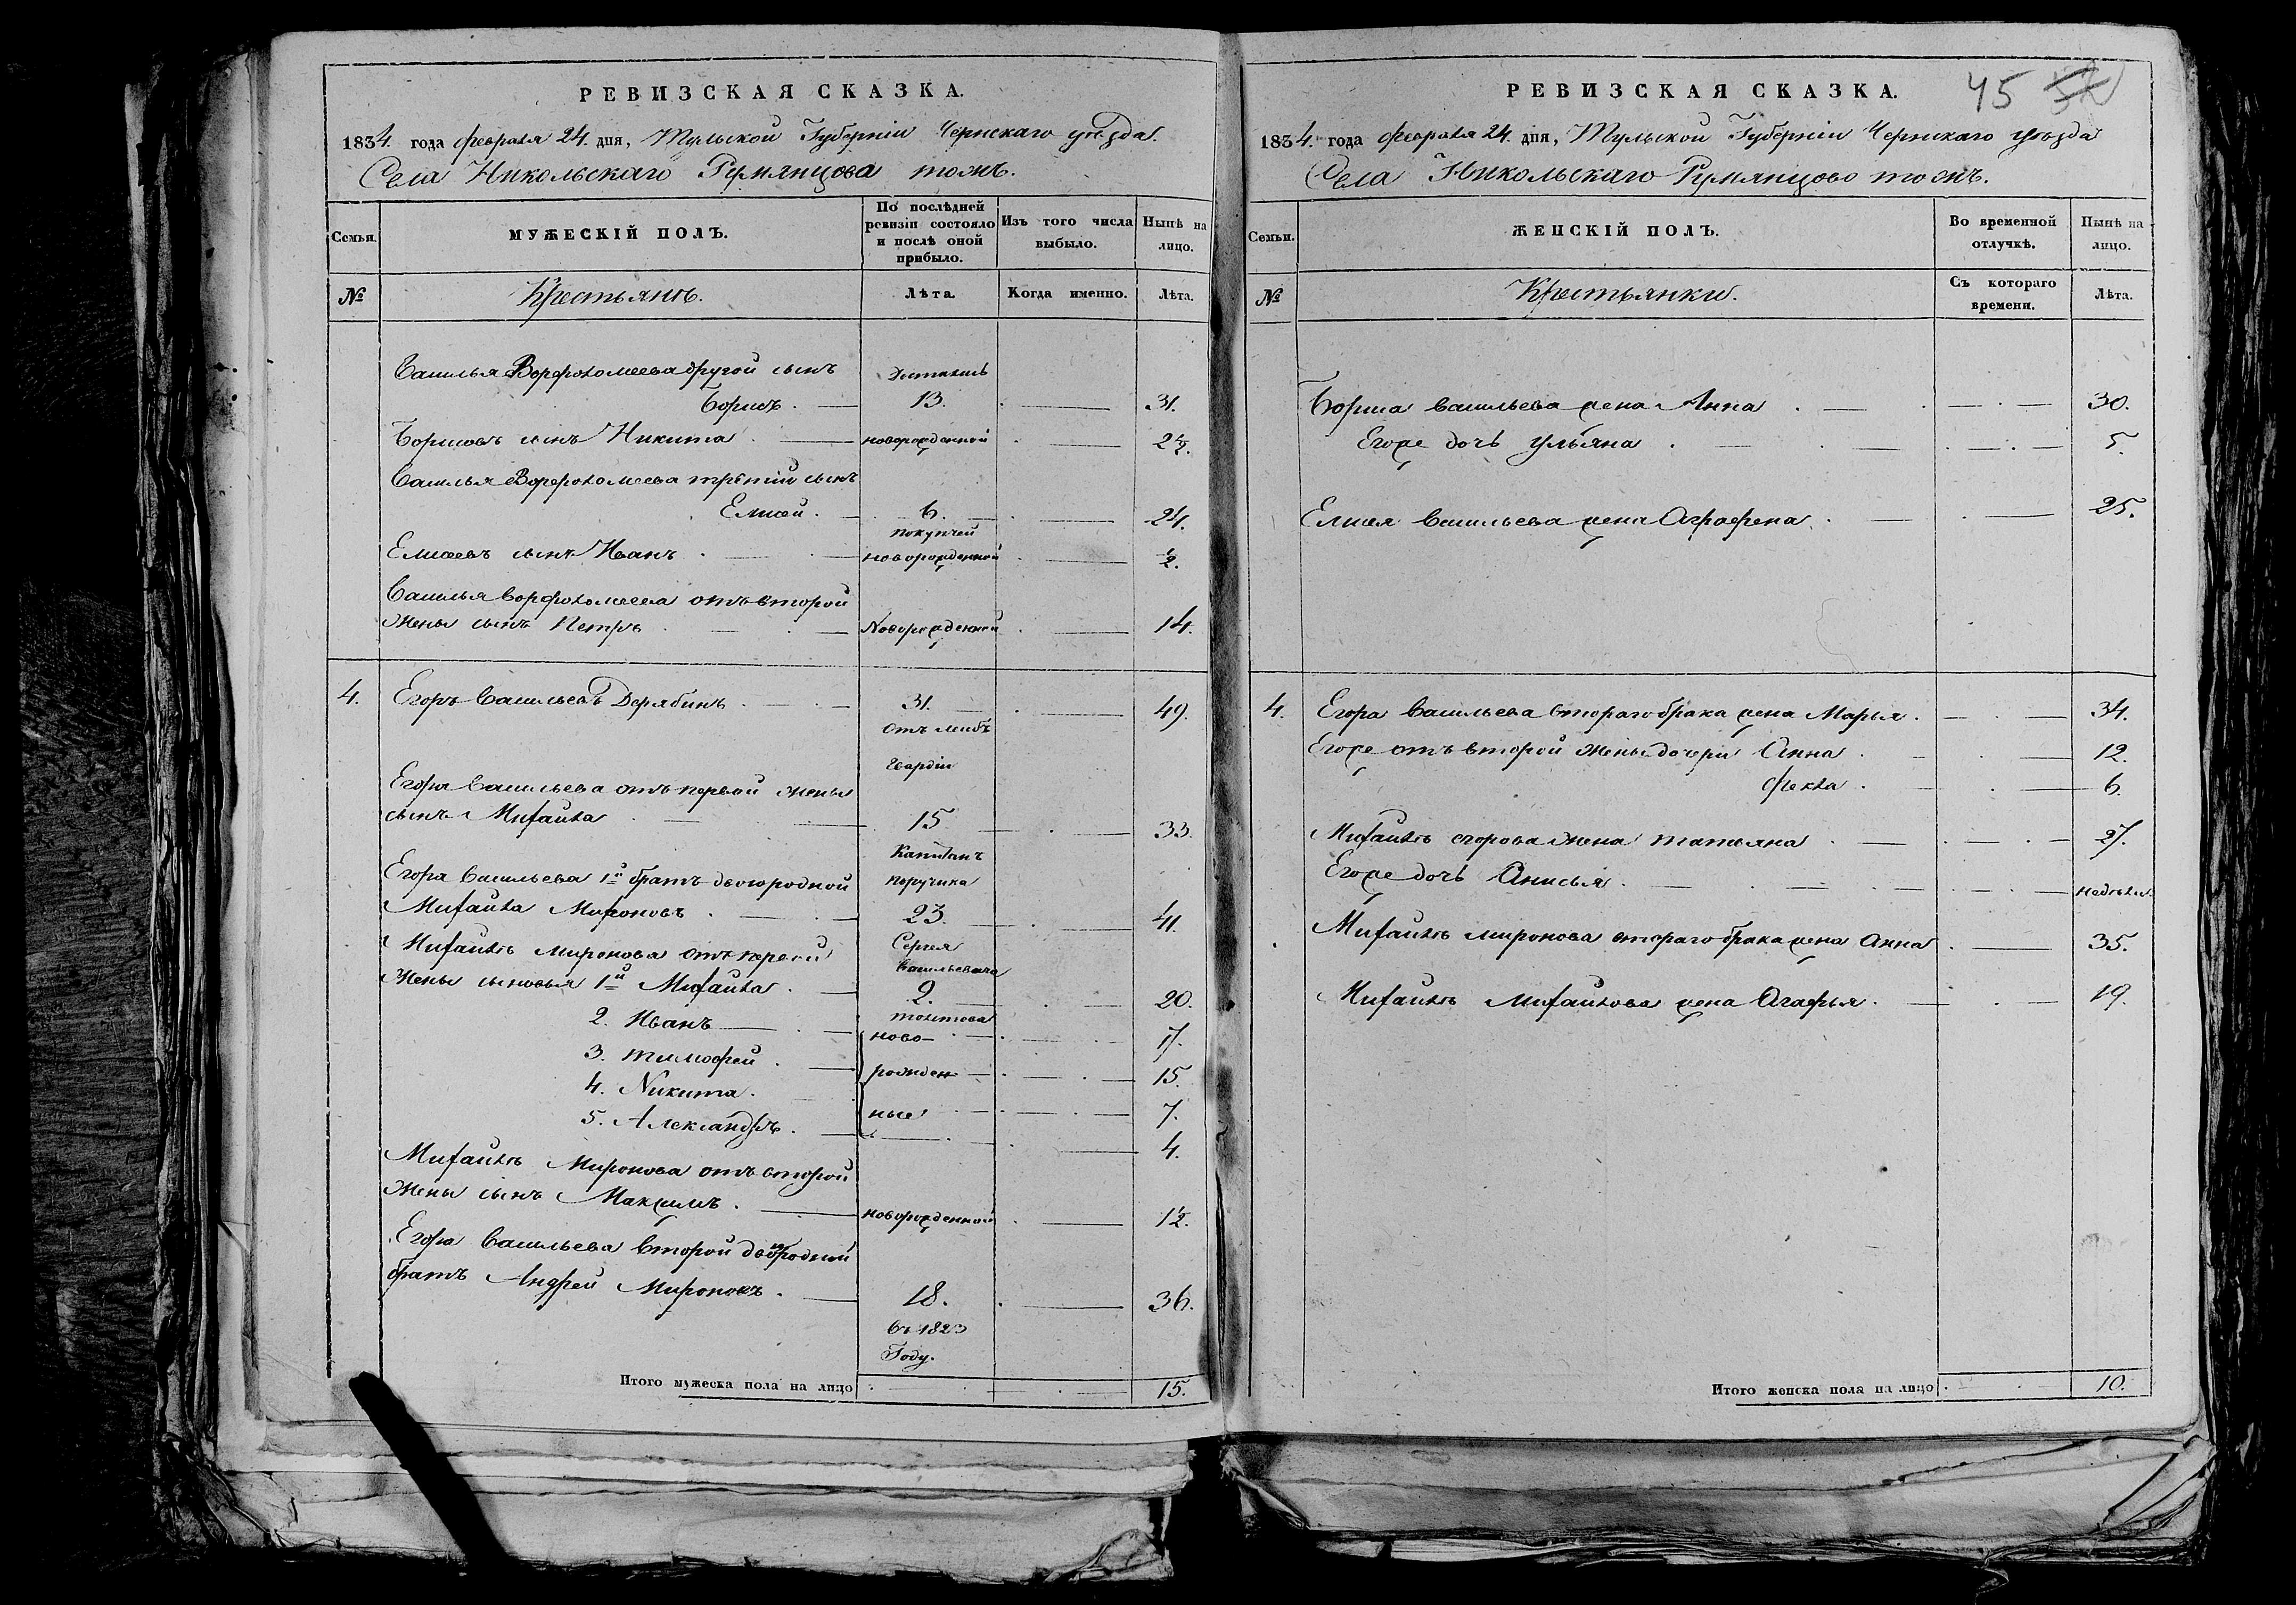 РЕВИЗСКАЯ СКАЗКА.
1834. года февраля 24. дня, Тульской Губерніи Чернскаго уѣзда.
Села Никольскаго Румянцова тожъ.
Семьи.
МУЖЕСКІЙ ПОЛЪ.
По послѣдней ревизіи состояло и послѣ оной прибыло.
Изъ того числа выбыло.
Нынѣ на лицо.
№
Крестьянъ.
Лѣта.
Когда именно.
Лѣта.
Василья Ворфоломеева другой сынъ
Борисъ. 13. 31.
Борисовъ сынъ Никита новорожденной 2½.
Василья Ворфоломеева третій сынъ
Елисей. 6. 24.
покупчей
Елисеевъ сынъ Иванъ новорожденной ½.
Василья Ворфоломеева отъ второй
жены сынъ Петръ Новорожденной 14.
4. Егоръ Васильевъ Дерябинъ 31. 49.
отъ лейбъ
Гвардіи
Егора Васильева отъ первой жены
сынъ Михайла 15 33.
Капитанъ
Егора Васильева 1й братъ двоюродной поручика
Михайла Мироновъ 23. 41.
Сергея
Михайлы Миронова отъ первой
Васильевича
жены сыновья 1й Михайла 2. 20.
толстова
2. Иванъ ново- 17.
3. тимофей рожден 15.
4. Никита. ные 7.
5. Александръ. 4.
Михайлы Миронова отъ второй
жены сынъ Максимъ. новорожденной 1½.
Егора Васильева второй двоюродный
братъ Андрей Мироновъ. 18. 36.
въ 1823
Году.
Итого мужеска пола на лицо 15.
45
РЕВИЗСКАЯ СКАЗКА.
1834. года февраля 24. дня, Тульской Губерніи Чернскаго уѣзда
Села Никольскаго Румянцово тожъ.
Семьи.
ЖЕНСКІЙ ПОЛЪ.
Во временной отлучкѣ.
Нынѣ на лицо.
№
Крестьянки.
Съ котораго времени.
Лѣта.
Бориса Васильева жена Анна 30.
Егоже дочь Ульяна 5.
Елисея Васильева жена Аграфена. 25.
4. Егора Васильева втораго брака жена Марья. 34.
Егоже отъ второй жены дочери Анна 12.
Фекла. 6.
Михайлы егорова жена татьяна 27.
Егоже дочь Анисья. недѣли
Михайлы миронова втораго брака жена Анна 35.
Михайлы Михайлова жена Агафья. 19.
Итого женска пола на лицо 10.